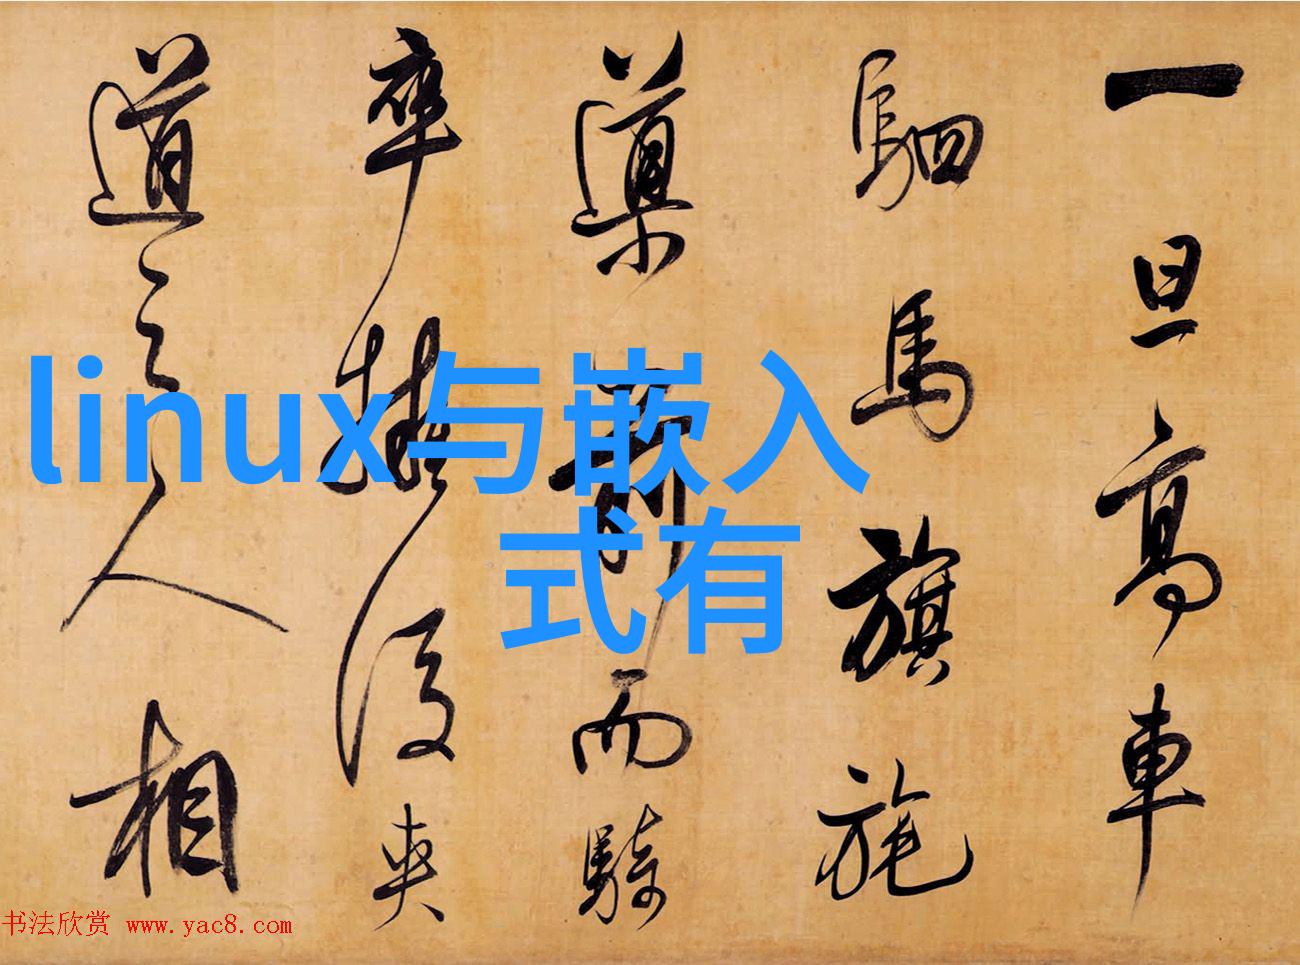 一旦高車
駟馬旗旄
導前而騎
卒擁後夾
道之人相
linux与嵌入
式有
书法欣赏 www.yac8.com